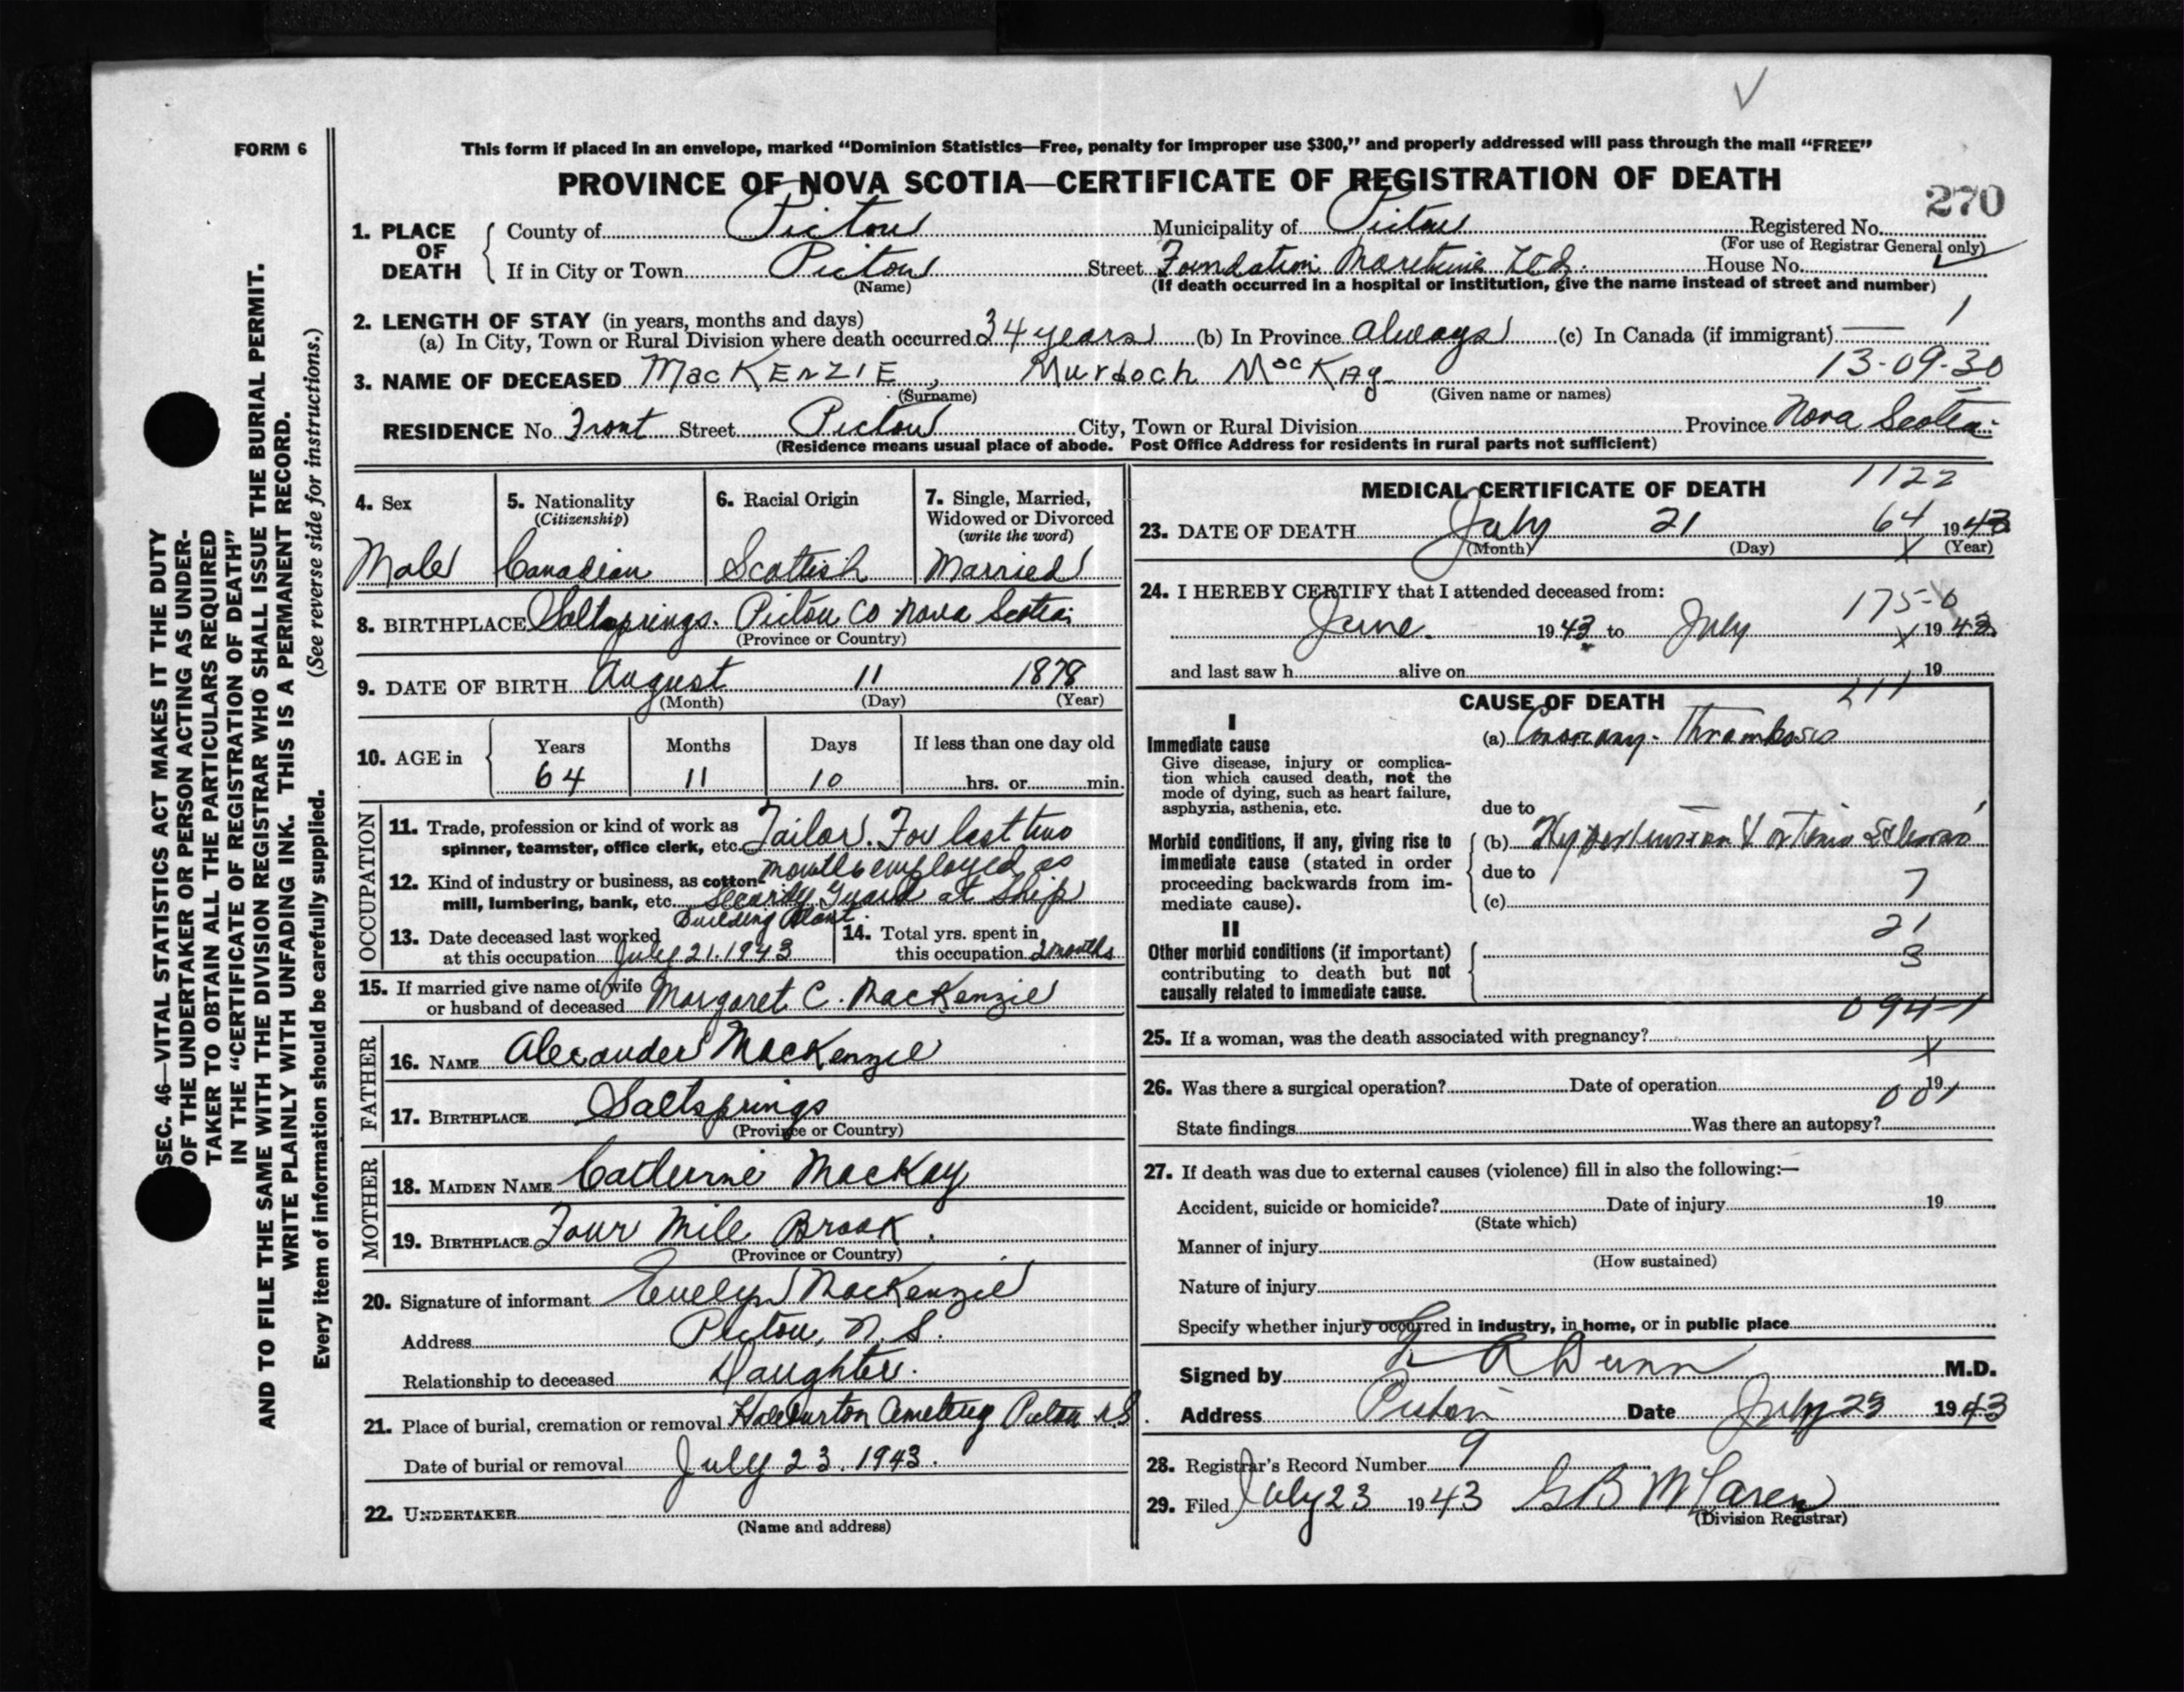 FORM 6
This form if placed in an envelope, marked “Dominion Statistics—Free, penalty for improper use $300,” and properly addressed will pass through the mail “FREE”
PROVINCE OF NOVA SCOTIA—CERTIFICATE OF REGISTRATION OF DEATH
270
1. PLACE OF DEATH
County of Pictou Municipality of Pictou Registered No.
(For use of Registrar General only)
If in City or Town Pictou Street Foundation Maretime Ltd. House No.
(Name) (If death occurred in a hospital or institution, give the name instead of street and number)
1
2. LENGTH OF STAY (in years, months and days)
(a) In City, Town or Rural Division where death occurred 34 years (b) In Province always (c) In Canada (if immigrant) —
13-09-30
3. NAME OF DECEASED MacKENZIE, Murdoch MacKay
(Surname) (Given name or names)
RESIDENCE No. Front Street Pictou City, Town or Rural Division Province Nova Scotia
(Residence means usual place of abode. Post Office Address for residents in rural parts not sufficient)
4. Sex Male
5. Nationality (Citizenship) Canadian
6. Racial Origin Scottish
7. Single, Married, Widowed or Divorced (write the word) Married
8. BIRTHPLACE Saltsprings. Pictou Co Nova Scotia
(Province or Country)
9. DATE OF BIRTH August 11 1878
(Month) (Day) (Year)
10. AGE in Years Months Days If less than one day old
64 11 10 hrs. or min.
OCCUPATION
11. Trade, profession or kind of work as spinner, teamster, office clerk, etc. Tailor. For last two
months employed as
12. Kind of industry or business, as cotton mill, lumbering, bank, etc. Security Guard at Ship
Building Plant.
13. Date deceased last worked at this occupation July 21.1943
14. Total yrs. spent in this occupation 2 months
15. If married give name of wife or husband of deceased Margaret C. MacKenzie
FATHER
16. NAME Alexander MacKenzie
17. BIRTHPLACE Saltsprings
(Province or Country)
MOTHER
18. MAIDEN NAME Catherine MacKay
19. BIRTHPLACE Four Mile Brook.
(Province or Country)
20. Signature of informant Evelyn MacKenzie
Address Pictou, N.S.
Relationship to deceased Daughter.
21. Place of burial, cremation or removal Haliburton Cemetery Pictou N.S.
Date of burial or removal July 23. 1943.
22. UNDERTAKER
(Name and address)
1122
MEDICAL CERTIFICATE OF DEATH
23. DATE OF DEATH July 21 64 1943
(Month) (Day) X (Year)
24. I HEREBY CERTIFY that I attended deceased from:
175-0
June. 1943 to July X 1943
and last saw h alive on 19
211
CAUSE OF DEATH
I
Immediate cause
Give disease, injury or complication which caused death, not the mode of dying, such as heart failure, asphyxia, asthenia, etc.
(a) Coronary Thrombosis
due to
Morbid conditions, if any, giving rise to immediate cause (stated in order proceeding backwards from immediate cause).
(b) Hypertension & arterio Sclerosis
due to
(c) 7
II
21
Other morbid conditions (if important) contributing to death but not causally related to immediate cause.
3
094-1
25. If a woman, was the death associated with pregnancy?
X
26. Was there a surgical operation? Date of operation 19
001
State findings Was there an autopsy?
27. If death was due to external causes (violence) fill in also the following:—
Accident, suicide or homicide? Date of injury 19
(State which)
Manner of injury
(How sustained)
Nature of injury
Specify whether injury occurred in industry, in home, or in public place
Signed by A Dunn M.D.
Address Pictou Date July 23 1943
28. Registrar's Record Number 9
29. Filed July 23 1943 GB McLaren
(Division Registrar)
SEC. 46—VITAL STATISTICS ACT MAKES IT THE DUTY
OF THE UNDERTAKER OR PERSON ACTING AS UNDER-
TAKER TO OBTAIN ALL THE PARTICULARS REQUIRED
IN THE “CERTIFICATE OF REGISTRATION OF DEATH”
AND TO FILE THE SAME WITH THE DIVISION REGISTRAR WHO SHALL ISSUE THE BURIAL PERMIT.
WRITE PLAINLY WITH UNFADING INK. THIS IS A PERMANENT RECORD.
Every item of information should be carefully supplied. (See reverse side for instructions.)